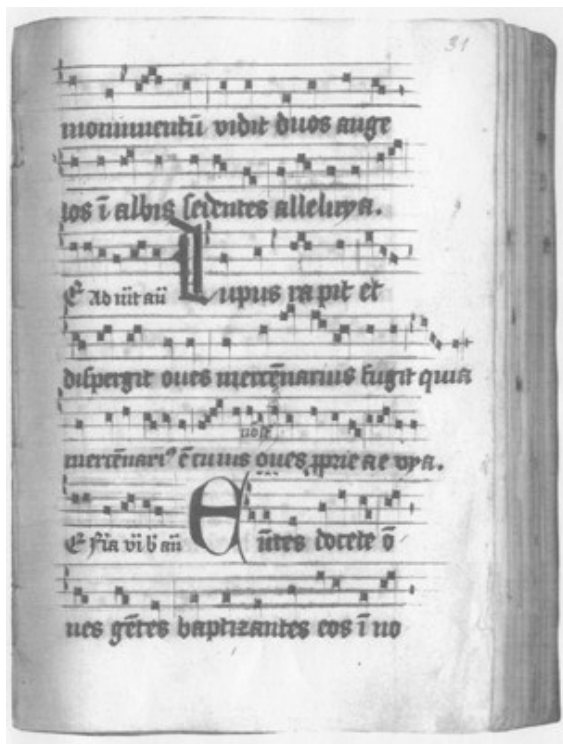 31
monumentū vidit duos ange
los ī albis sedentes alleluya.
Lupus rapit et
dispergit oues mercēnarius fugit quia
mercēnariꝰ ē cuius oues ꝓprie ae vya.
Euntes docete ō
nes gētes baptizantes eos ī no